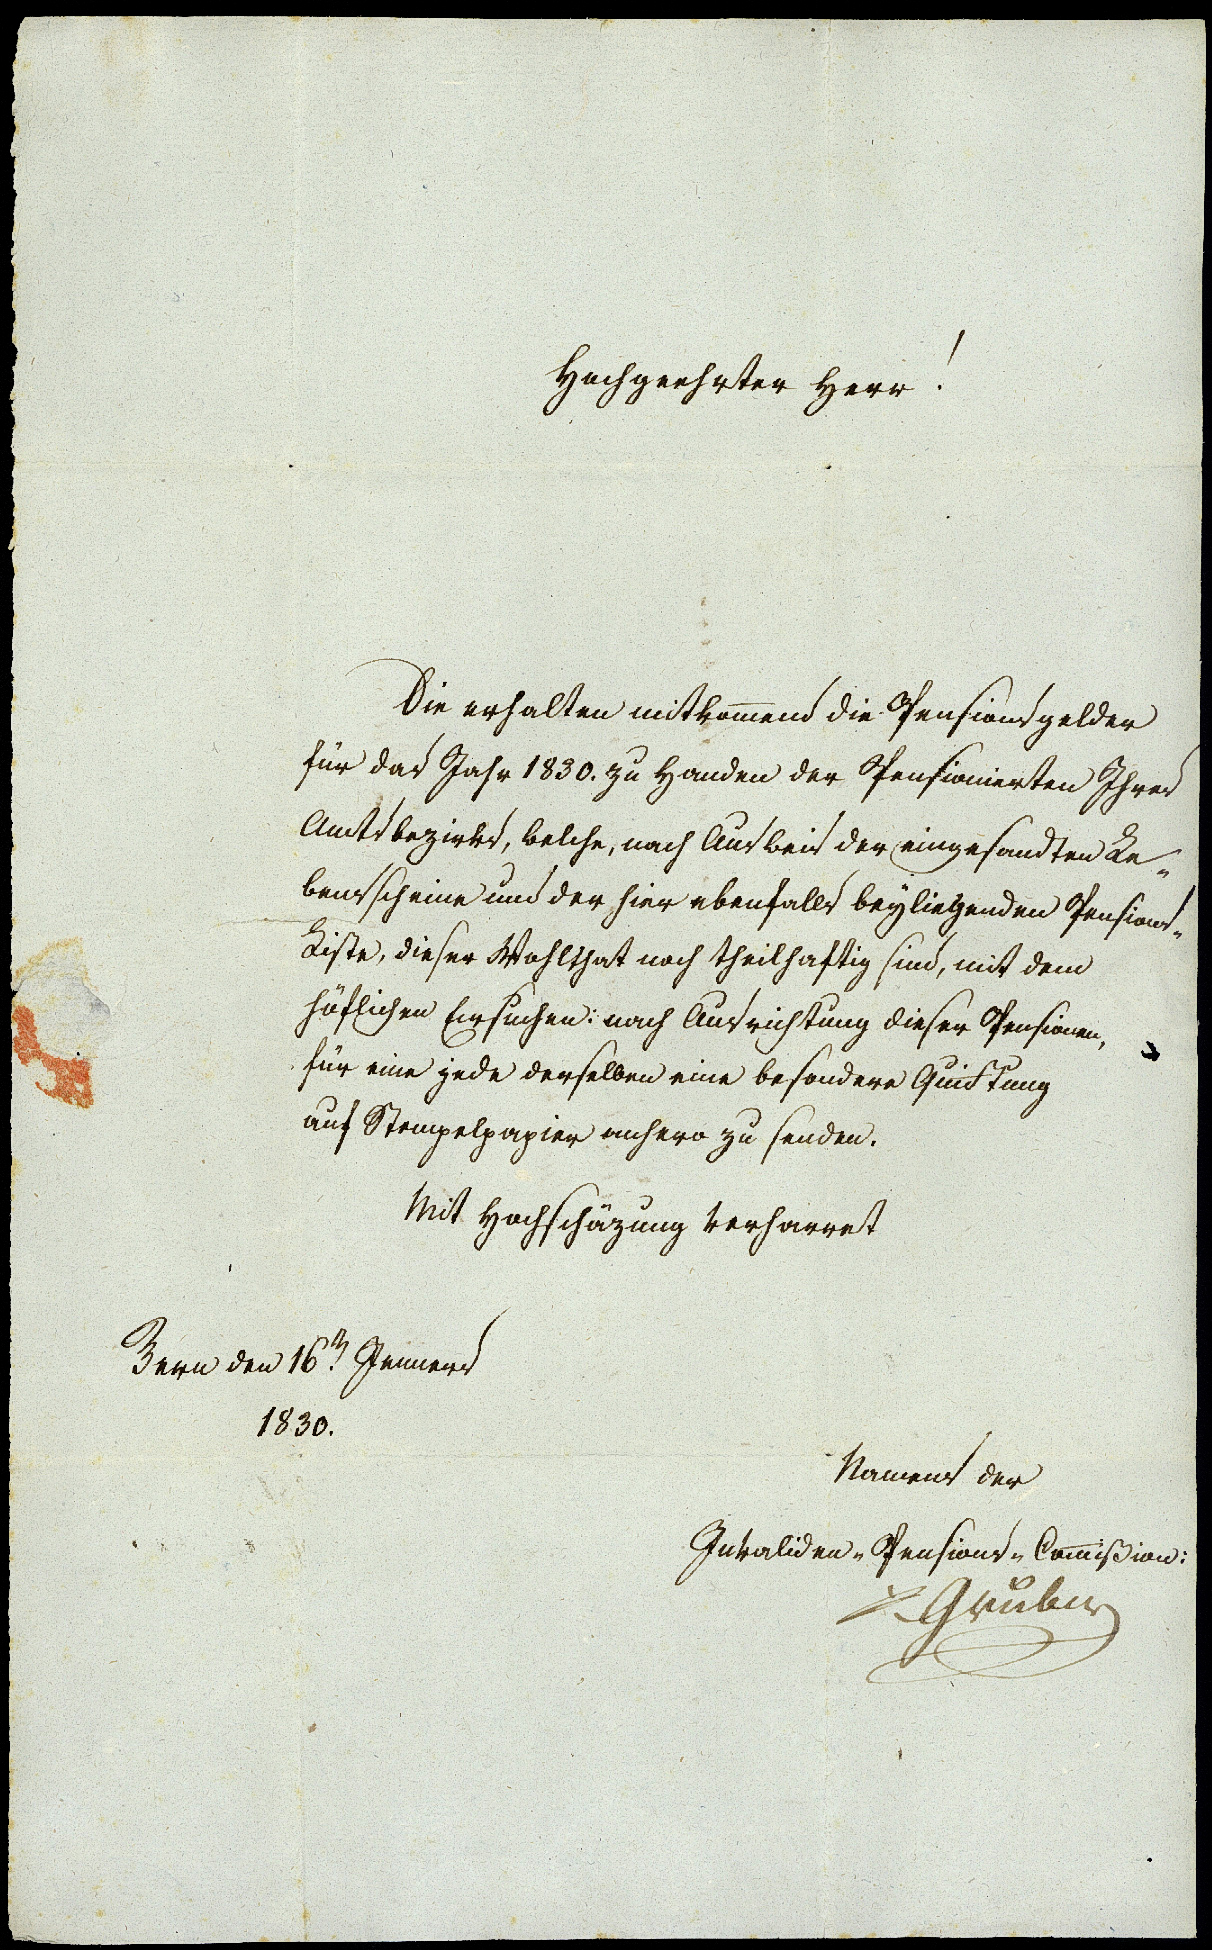 Hochgeehrter Herr!
Sie erhalten mitkom̄end die Pensionsgelder
für das Jahr 1830. zu Handen der Pensionierten Ihres
Amtsbezirks, welche, nach Ausweis der eingesandten Le-
bensscheine und der hier ebenfalls beyliegenden Pensions-
Liste, dieser Wohlthat noch theilhaftig sind, mit dem
höflichen Ersuchen: nach Ausrichtung dieser Pensionen,
für eine jede derselben eine besondere Quittung
auf Stempelpapier anhero zu senden.
Mit Hochschäzung verharret
Bern den 16.n Jenners
1830.
Namens der
Invaliden-Pensions-Com̄ißion:
Gruber